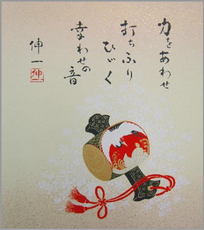 力をあわせ
打ちふり
ひゞく
幸わせの音
伸一
伸一